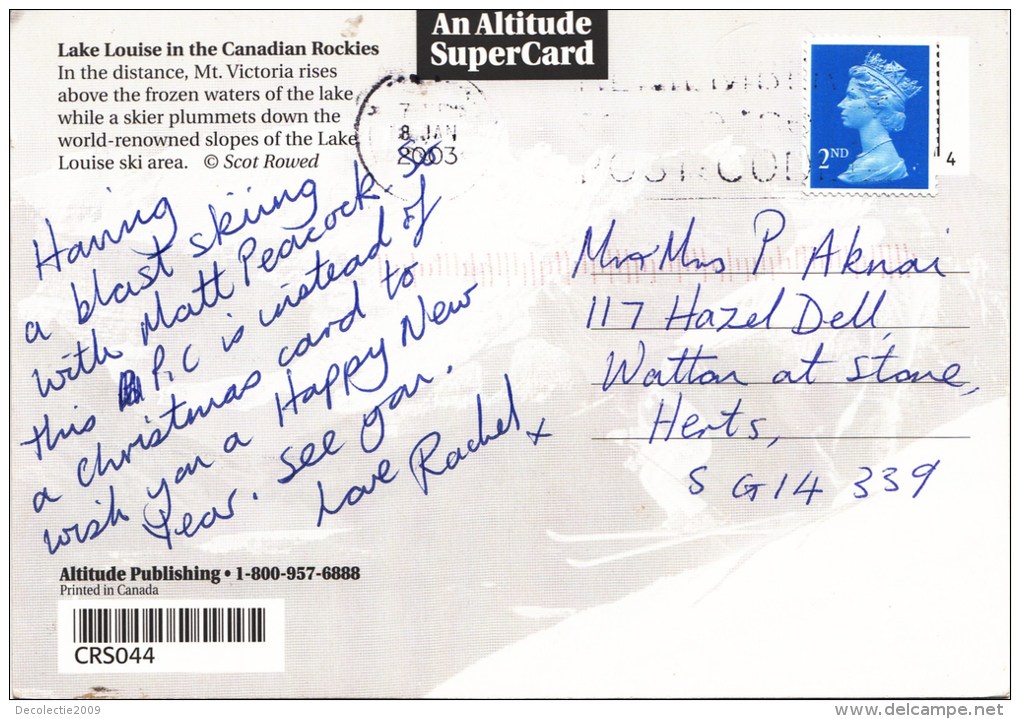 An Altitude
SuperCard
Lake Louise in the Canadian Rockies
In the distance, Mt. Victoria rises
above the frozen waters of the lake
while a skier plummets down the
world-renowned slopes of the Lake
Louise ski area. © Scot Rowed
8 JAN
2003
POSTCODE
2ND
4
Having
a blast skiing so
with Matt Peacock
this P.C is instead of
a christmas card to
wish you a Happy New
Year. See you.
Love Rachel x
Mr & Mrs P Aknai
117 Hazel Dell,
Watton at Stone,
Herts,
SG14 339
Altitude Publishing • 1-800-957-6888
Printed in Canada
CRS044
Decolectie2009
www.delcampe.net